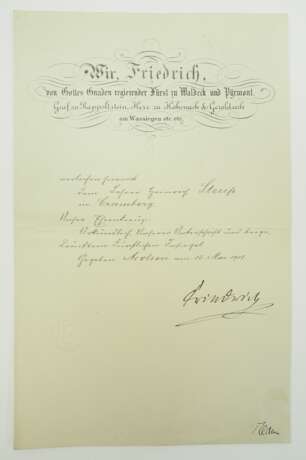 Wir, Friedrich,
von Gottes Gnaden regierender Fürst zu Waldeck und Pyrmont,
Graf zu Rappoltstein, Herr zu Hohenack & Geroldseck
am Wassigen etc. etc.
verleihen hiermit
dem Lehrer Heinrich
in
Unser Ehrenkreuz
Urkundlich Unserer Unterschrift und beige-
Fürstlichen Insiegel
Gegeben Arolsen am Mai
Friedrich